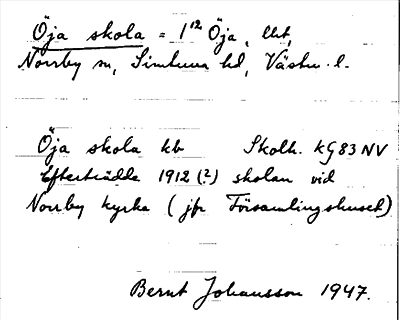 Öja skola = 1¹² Öja, lht,
Norrby sn, Simtuna hd, Västm. l.
Öja skola kb Skolh. kG83NV
Efterträdde 1912 (?) skolan vid
Norrby kyrka (jfr Församlingshuset)
Bernt Johansson 1947.